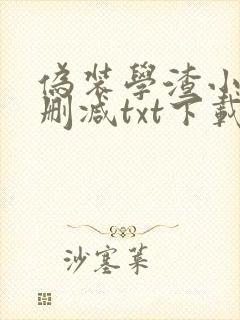 偽装學渣小
刪減txt下載
沙塞菓